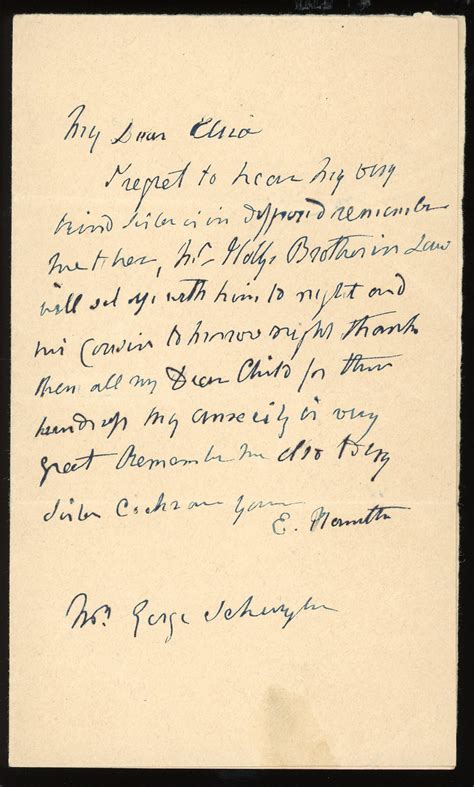 My Dear Eliza
I regret to hear my very
kind sister is indisposed remember
me to her, Mr Brother in Law
will set up with him to night and
his Cousin to morrow night thank
them all my Dear Child for their
kindness my anxiety is very
great Remember me also to my
Sister Cochran yours
E. Hamilton
Mrs George Schuyler